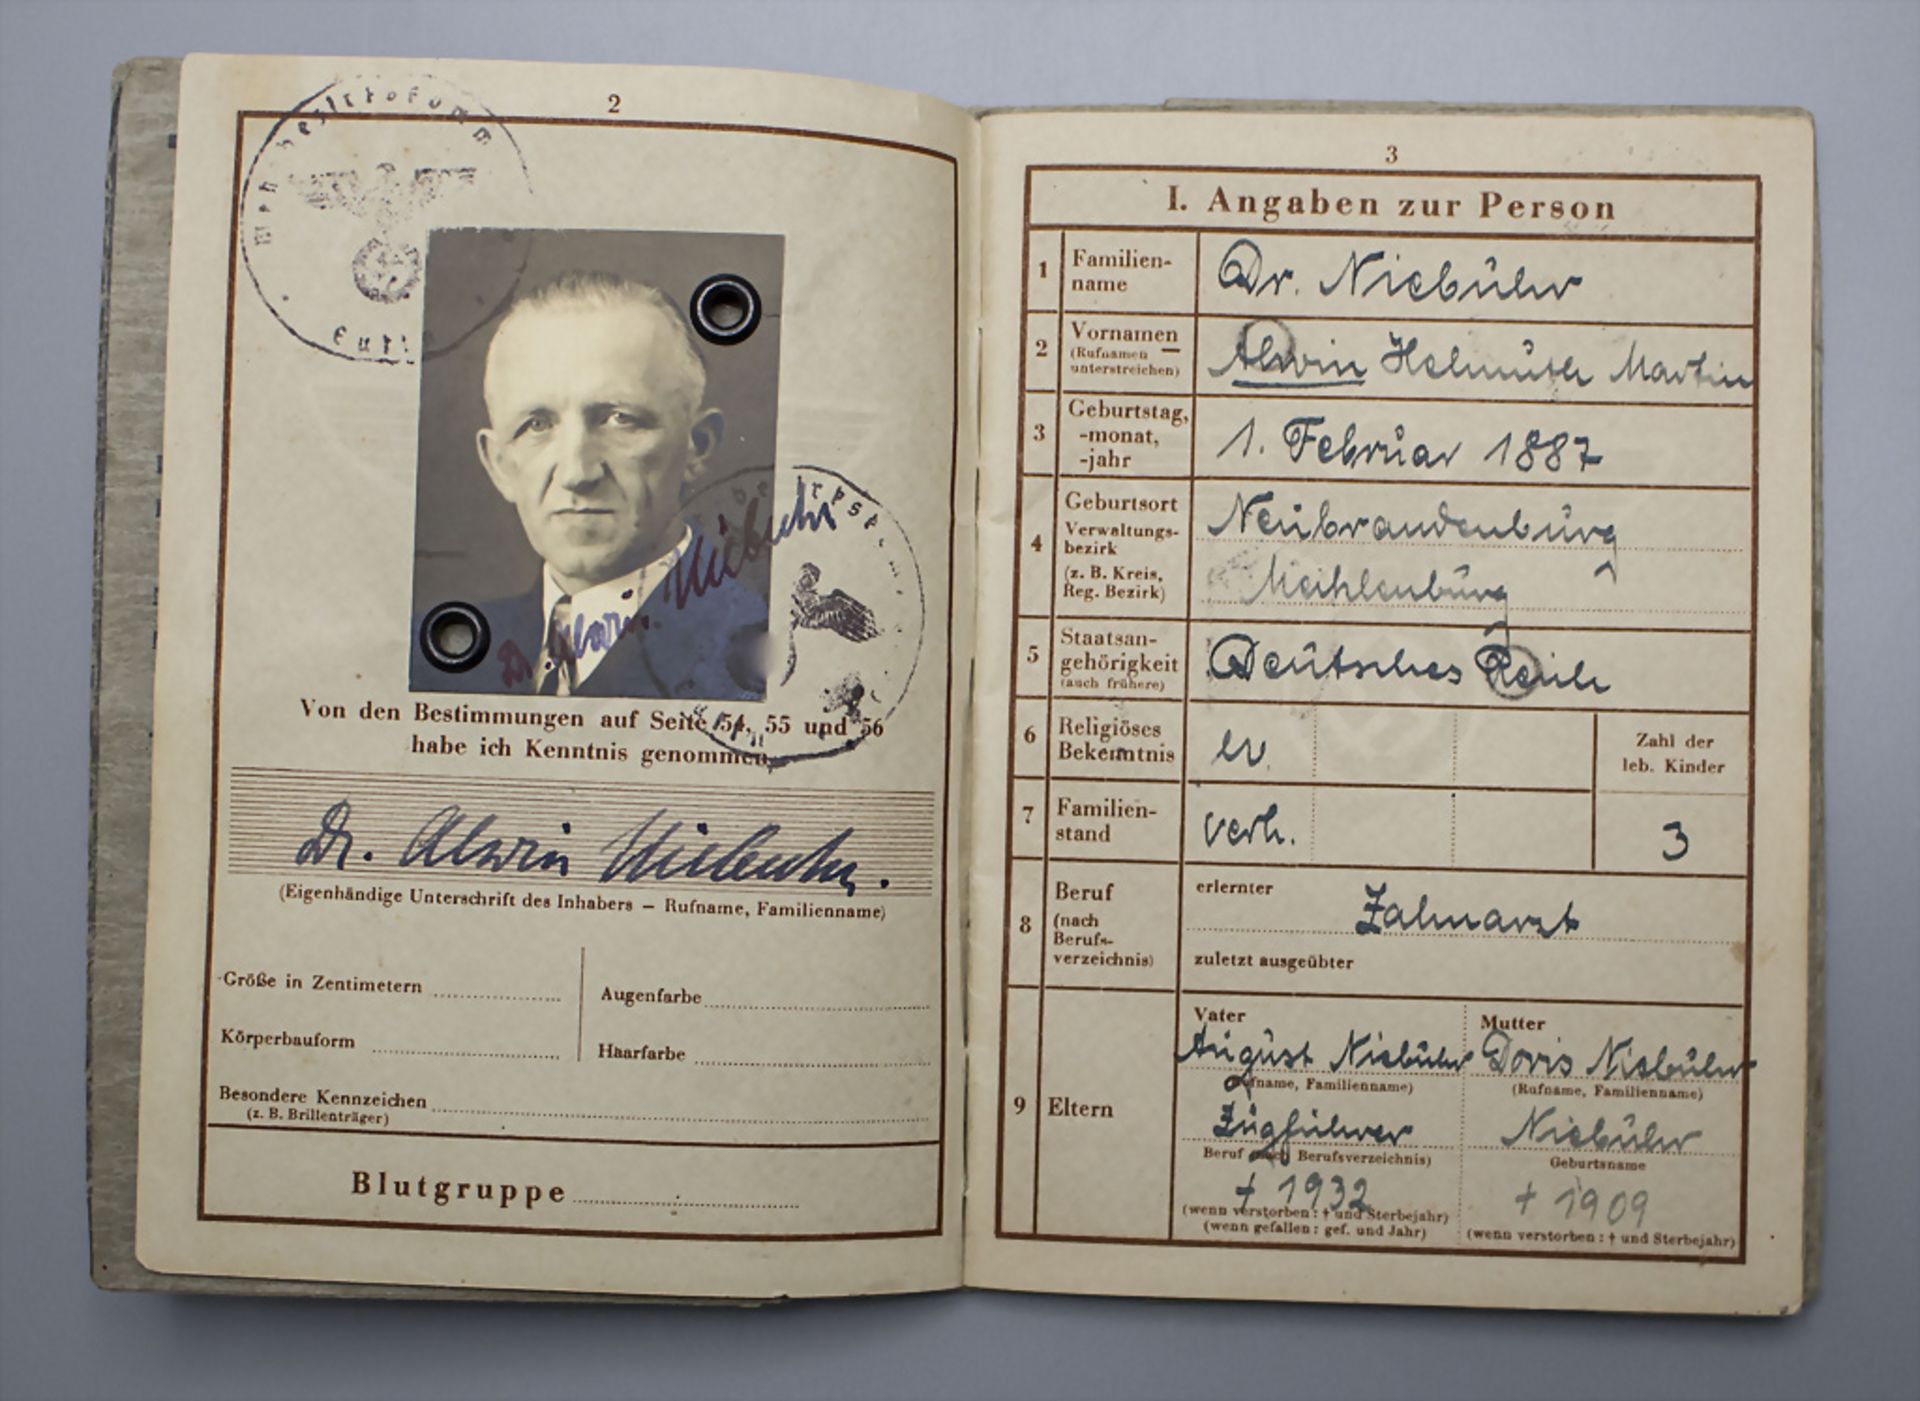 2
Dr. Alwin Niebuhr
Von den Bestimmungen auf Seite 54, 55 und 56
habe ich Kenntnis genommen.
Dr. Alwin Niebuhr.
(Eigenhändige Unterschrift des Inhabers – Rufname, Familienname)
Größe in Zentimetern
Augenfarbe
Körperbauform
Haarfarbe
Besondere Kennzeichen
(z. B. Brillenträger)
Blutgruppe
3
I. Angaben zur Person
1 Familien-
name
Dr. Niebuhr
2 Vornamen
(Rufnamen
unterstreichen)
Alwin Helmuth Martin
3 Geburtstag,
-monat,
-jahr
1. Februar 1887
4 Geburtsort
Verwaltungs-
bezirk
(z. B. Kreis,
Reg. Bezirk)
Neubrandenburg
5 Staatsan-
gehörigkeit
(auch frühere)
Deutsches Reich
6 Religiöses
Bekenntnis
ev.
Zahl der
leb. Kinder
7 Familien-
stand
verh.
3
8 Beruf
(nach
Berufs-
verzeichnis)
erlernter
Zahnarzt
zuletzt ausgeübter
9 Eltern
Vater
August Niebuhr
(Rufname, Familienname)
Zugführer
Beruf (nach Berufsverzeichnis)
† 1932
(wenn verstorben: † und Sterbejahr)
(wenn gefallen: gef. und Jahr)
Mutter
Doris Niebuhr
(Rufname, Familienname)
Niebuhr
Geburtsname
† 1909
(wenn verstorben: † und Sterbejahr)